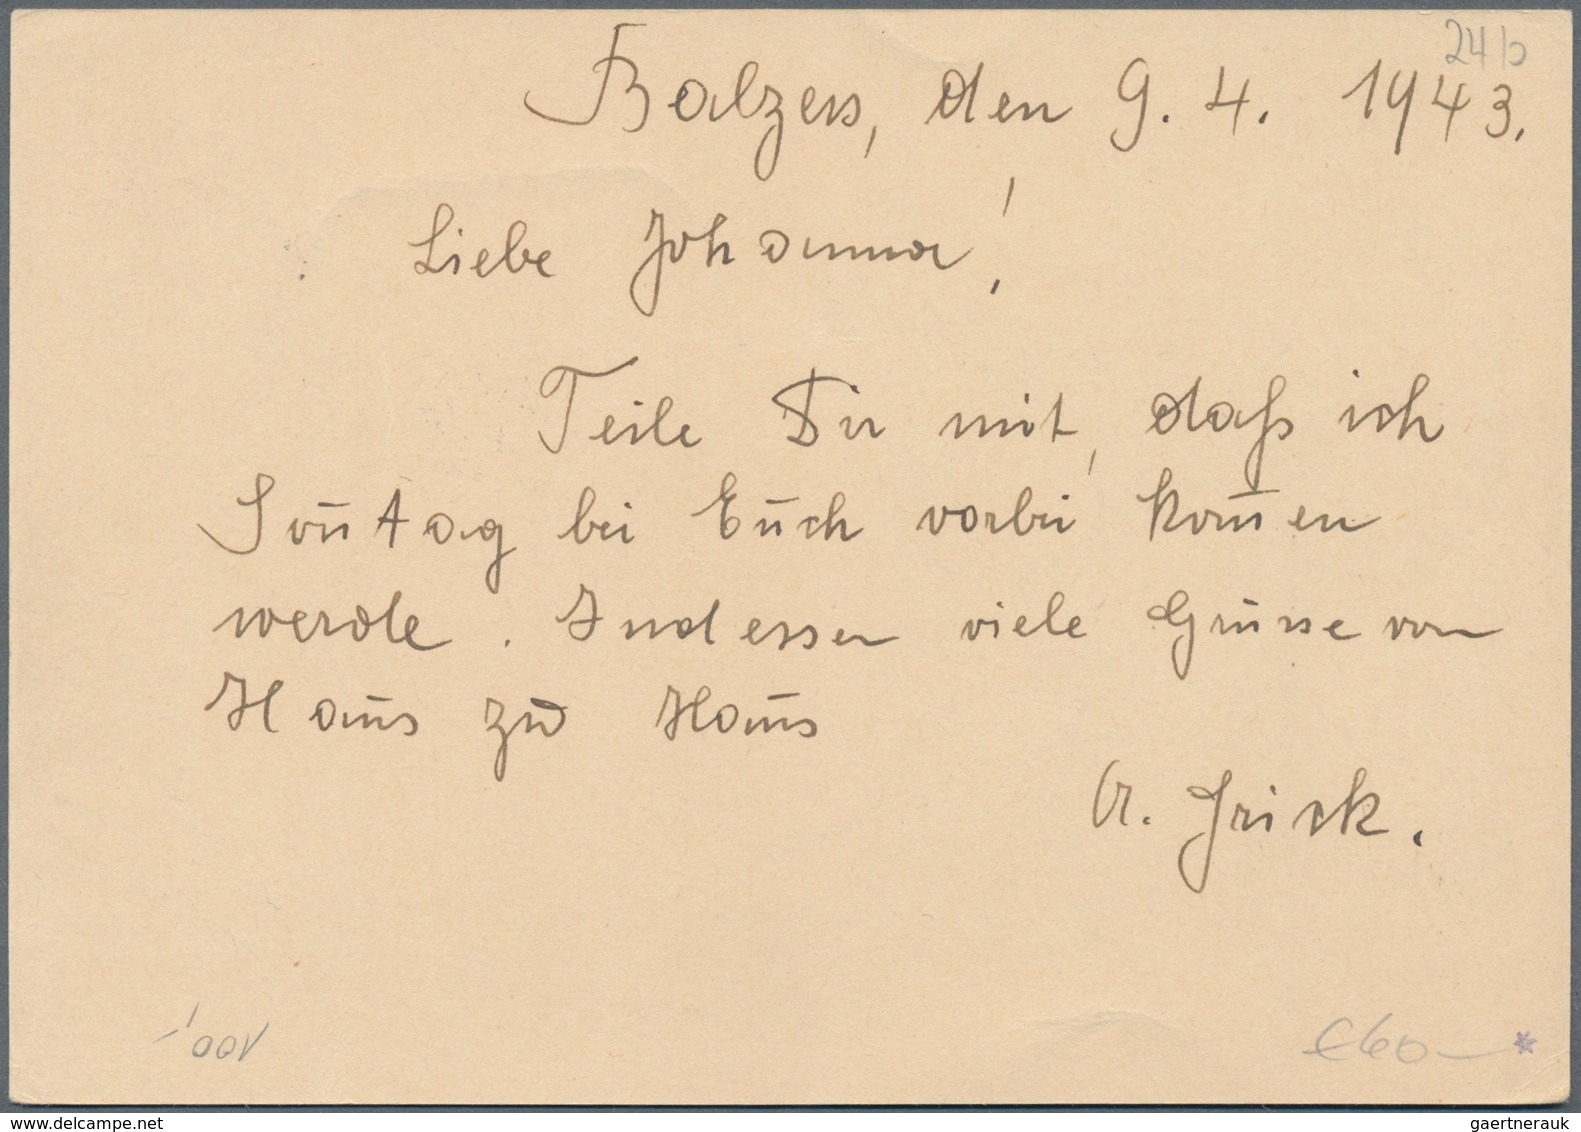 24 b
Balzers, den 9. 4. 1943.
Liebe Johanna!
Teile Dir mit, daß ich
Soñtag bei Euch vorbei kom̄en
werde. Indessen viele Grüsse von
Haus zu Haus
A. Frick.
€60-
www.delcampe.net
gaertnerauk